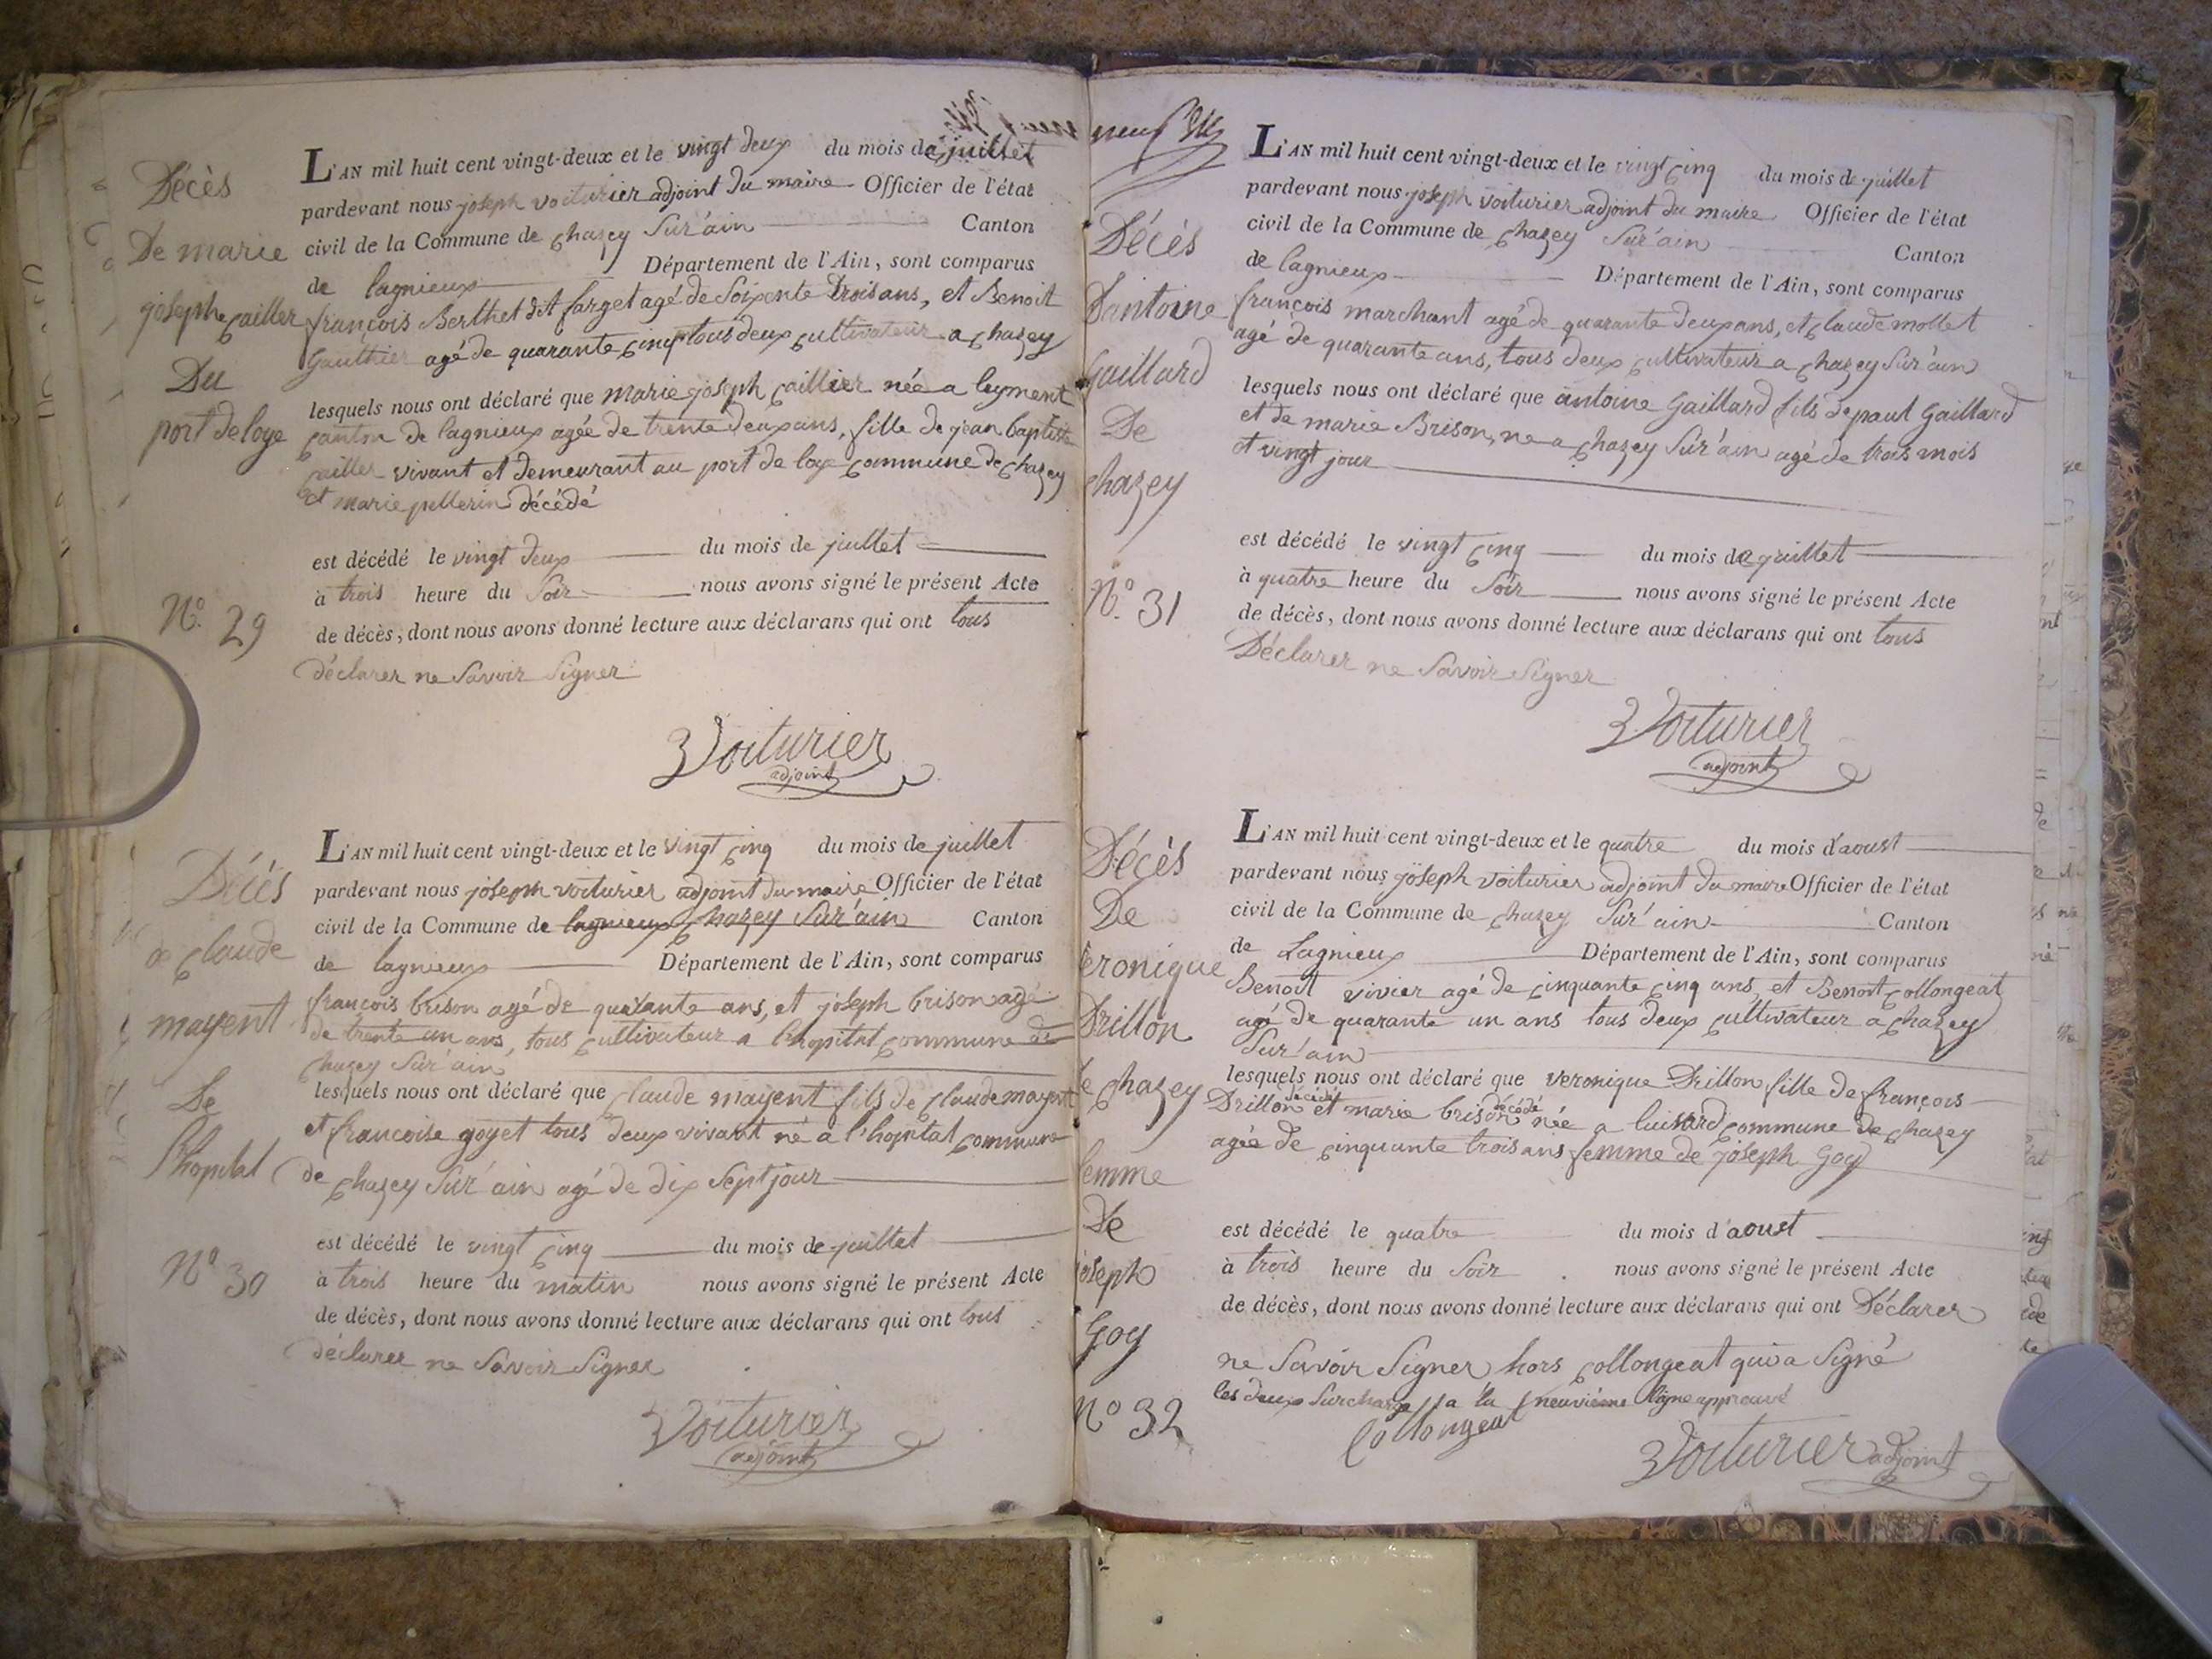 Décès
De marie
josephe cailler
Du
port de loye
N.º 29
L'AN mil huit cent vingt-deux et le vingt deux du mois de juillet
pardevant nous joseph voiturier adjoint du maire Officier de l'état
civil de la Commune de chazey Sur'ain Canton
de lagnieux Département de l'Ain, sont comparus
françois Berthet dit farget agé de Soixente trois ans, et Benoit
Gauthier agé de quarante cinq tous deux cultivateur a chazey
lesquels nous ont déclaré que marie joseph caillier née a leyment
canton de lagnieux agée de trente deux ans, fille de jean baptiste
cailler vivant et demeurant au port de loye commune de chazey
et marie pellerin décédé
est décédé le vingt deux du mois de juillet
à trois heure du Soir nous avons signé le présent Acte
de décès, dont nous avons donné lecture aux déclarans qui ont tous
déclarer ne Savoir Signer
Voiturier
adjoint
Décès
de claude
mayent
De
l'hopital
N.º 30
L'AN mil huit cent vingt-deux et le vingt cinq du mois de juillet
pardevant nous joseph voiturier adjoint du maire Officier de l'état
civil de la Commune de lagnieux chazey Sur'ain Canton
de lagnieux Département de l'Ain, sont comparus
françois brison agé de quarante ans, et joseph brison agé
de trente un ans, tous cultivateur a l'hopital commune de
chazey Sur'ain
lesquels nous ont déclaré que claude mayent fils de claude mayent
et francoise goyet tous deux vivant né a l'hopital commune
de chazey Sur'ain agé de dix Sept jour
est décédé le vingt cinq du mois de juillet
à trois heure du matin nous avons signé le présent Acte
de décès, dont nous avons donné lecture aux déclarans qui ont tous
déclarer ne Savoir Signer
Voiturier
adjoint
neuf
Décès
Dantoine
Gaillard
De
chazey
N.º 31
L'AN mil huit cent vingt-deux et le vingt cinq du mois de juillet
pardevant nous joseph voiturier adjoint du maire Officier de l'état
civil de la Commune de chazey Sur'ain Canton
de lagnieux Département de l'Ain, sont comparus
françois marchant agé de quarante deux ans, et claude mollet
agé de quarante ans, tous deux cultivateur a chazey Sur'ain
lesquels nous ont déclaré que antoine Gaillard fils de paul Gaillard
et de marie Brison, ne a chazey Sur'ain agé de trois mois
et vingt jour
est décédé le vingt cinq du mois de juillet
à quatre heure du Soir nous avons signé le présent Acte
de décès, dont nous avons donné lecture aux déclarans qui ont tous
Déclarer ne Savoir Signer
Voiturier
adjoint
Décès
De
veronique
Drillon
de chazey
femme
De
joseph
Goy
N.º 32
L'AN mil huit cent vingt-deux et le quatre du mois d'aoust
pardevant nous joseph voiturier adjoint du maire Officier de l'état
civil de la Commune de chazey Sur'ain Canton
de Lagnieux Département de l'Ain, sont comparus
Benoit vivier agé de cinquante cinq ans et Benoit collongeat
agé de quarante un ans tous deux cultivateur a chazey
Sur'ain
lesquels nous ont déclaré que veronique Drillon fille de françois
décédé décédé
Drillon et marie brison née a luisard commune de chazey
agée de cinquante trois ans femme de joseph Goy
est décédé le quatre du mois d'aoust
à trois heure du Soir nous avons signé le présent Acte
de décès, dont nous avons donné lecture aux déclarans qui ont Déclarer
ne Savoir Signer hors collongeat qui a Signé
les deux Surcharge a la neuvième ligne approuvé
Collongeat
Voiturier adjoint